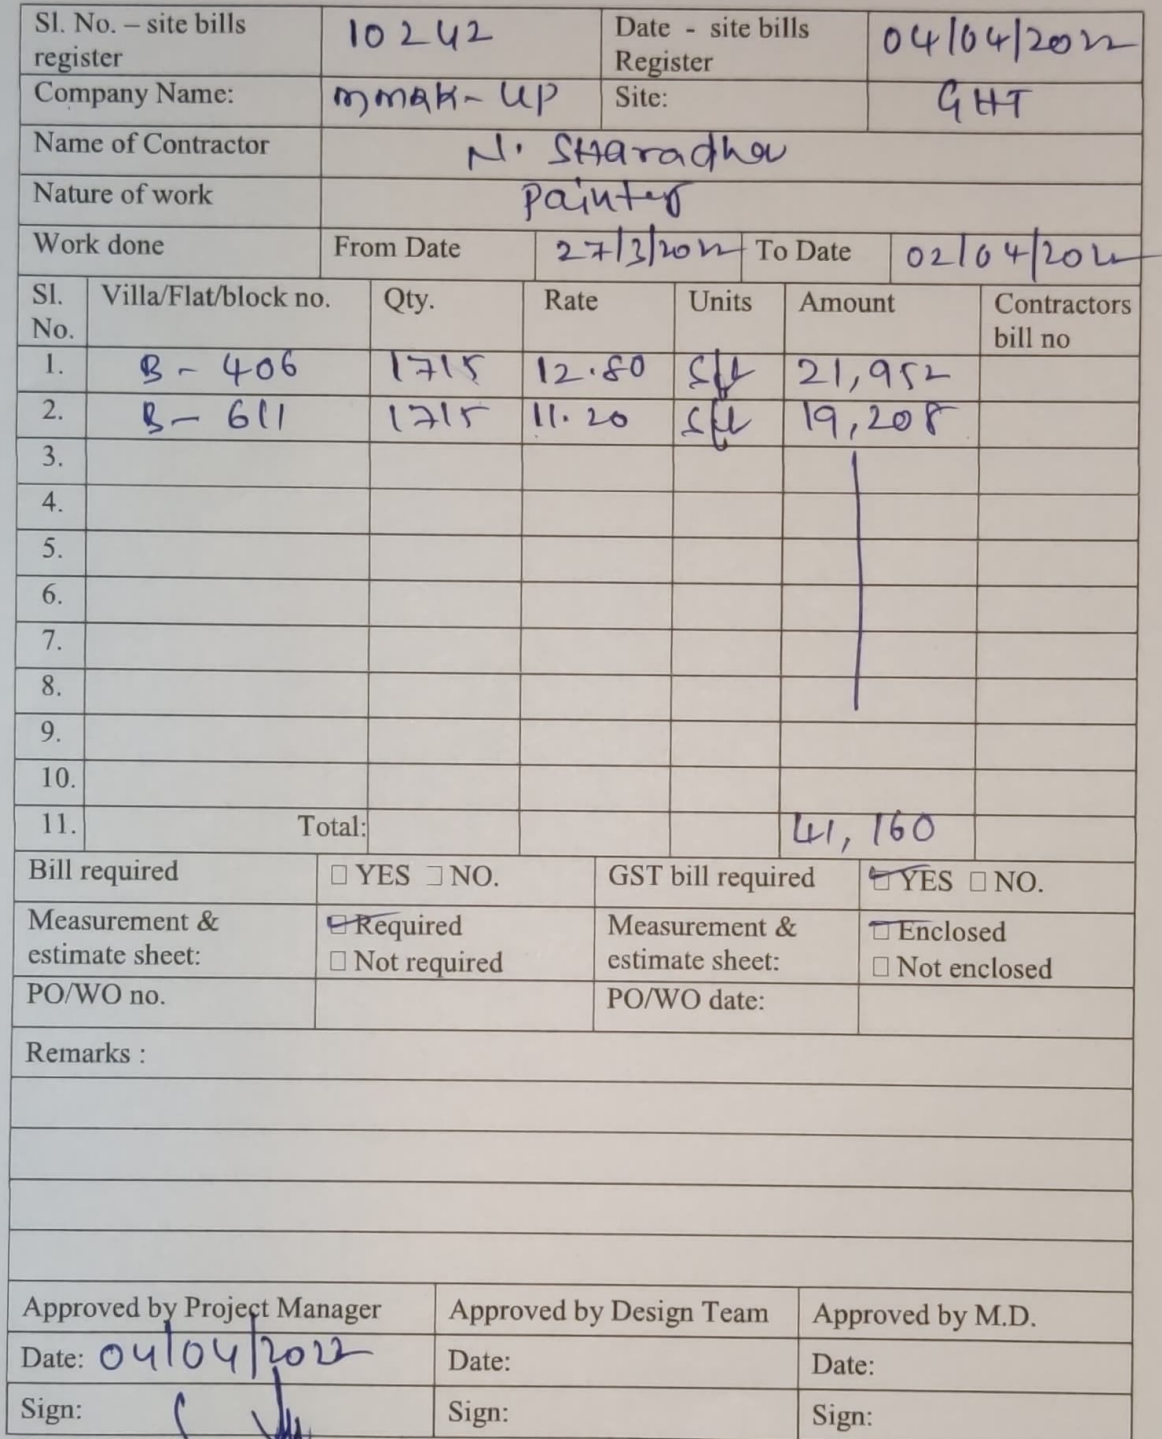 Sl. No. – site bills register 10242 Date - site bills Register 04/04/2022
Company Name: mmak-UP Site: GHT
Name of Contractor N. SHaradha
Nature of work Painter
Work done From Date 27/3/2022 To Date 02/04/2022
Sl. No. Villa/Flat/block no. Qty. Rate Units Amount Contractors bill no
1. B - 406 1715 12.80 Sft 21,952
2. B - 611 1715 11.20 Sft 19,208
3.
4.
5.
6.
7.
8.
9.
10.
11. Total: 41,160
Bill required □ YES □ NO. GST bill required ☑ YES □ NO.
Measurement & estimate sheet: ☑ Required □ Not required Measurement & estimate sheet: ☑ Enclosed □ Not enclosed
PO/WO no. PO/WO date:
Remarks :
Approved by Project Manager Approved by Design Team Approved by M.D.
Date: 04/04/2022 Date: Date:
Sign: Sign: Sign: